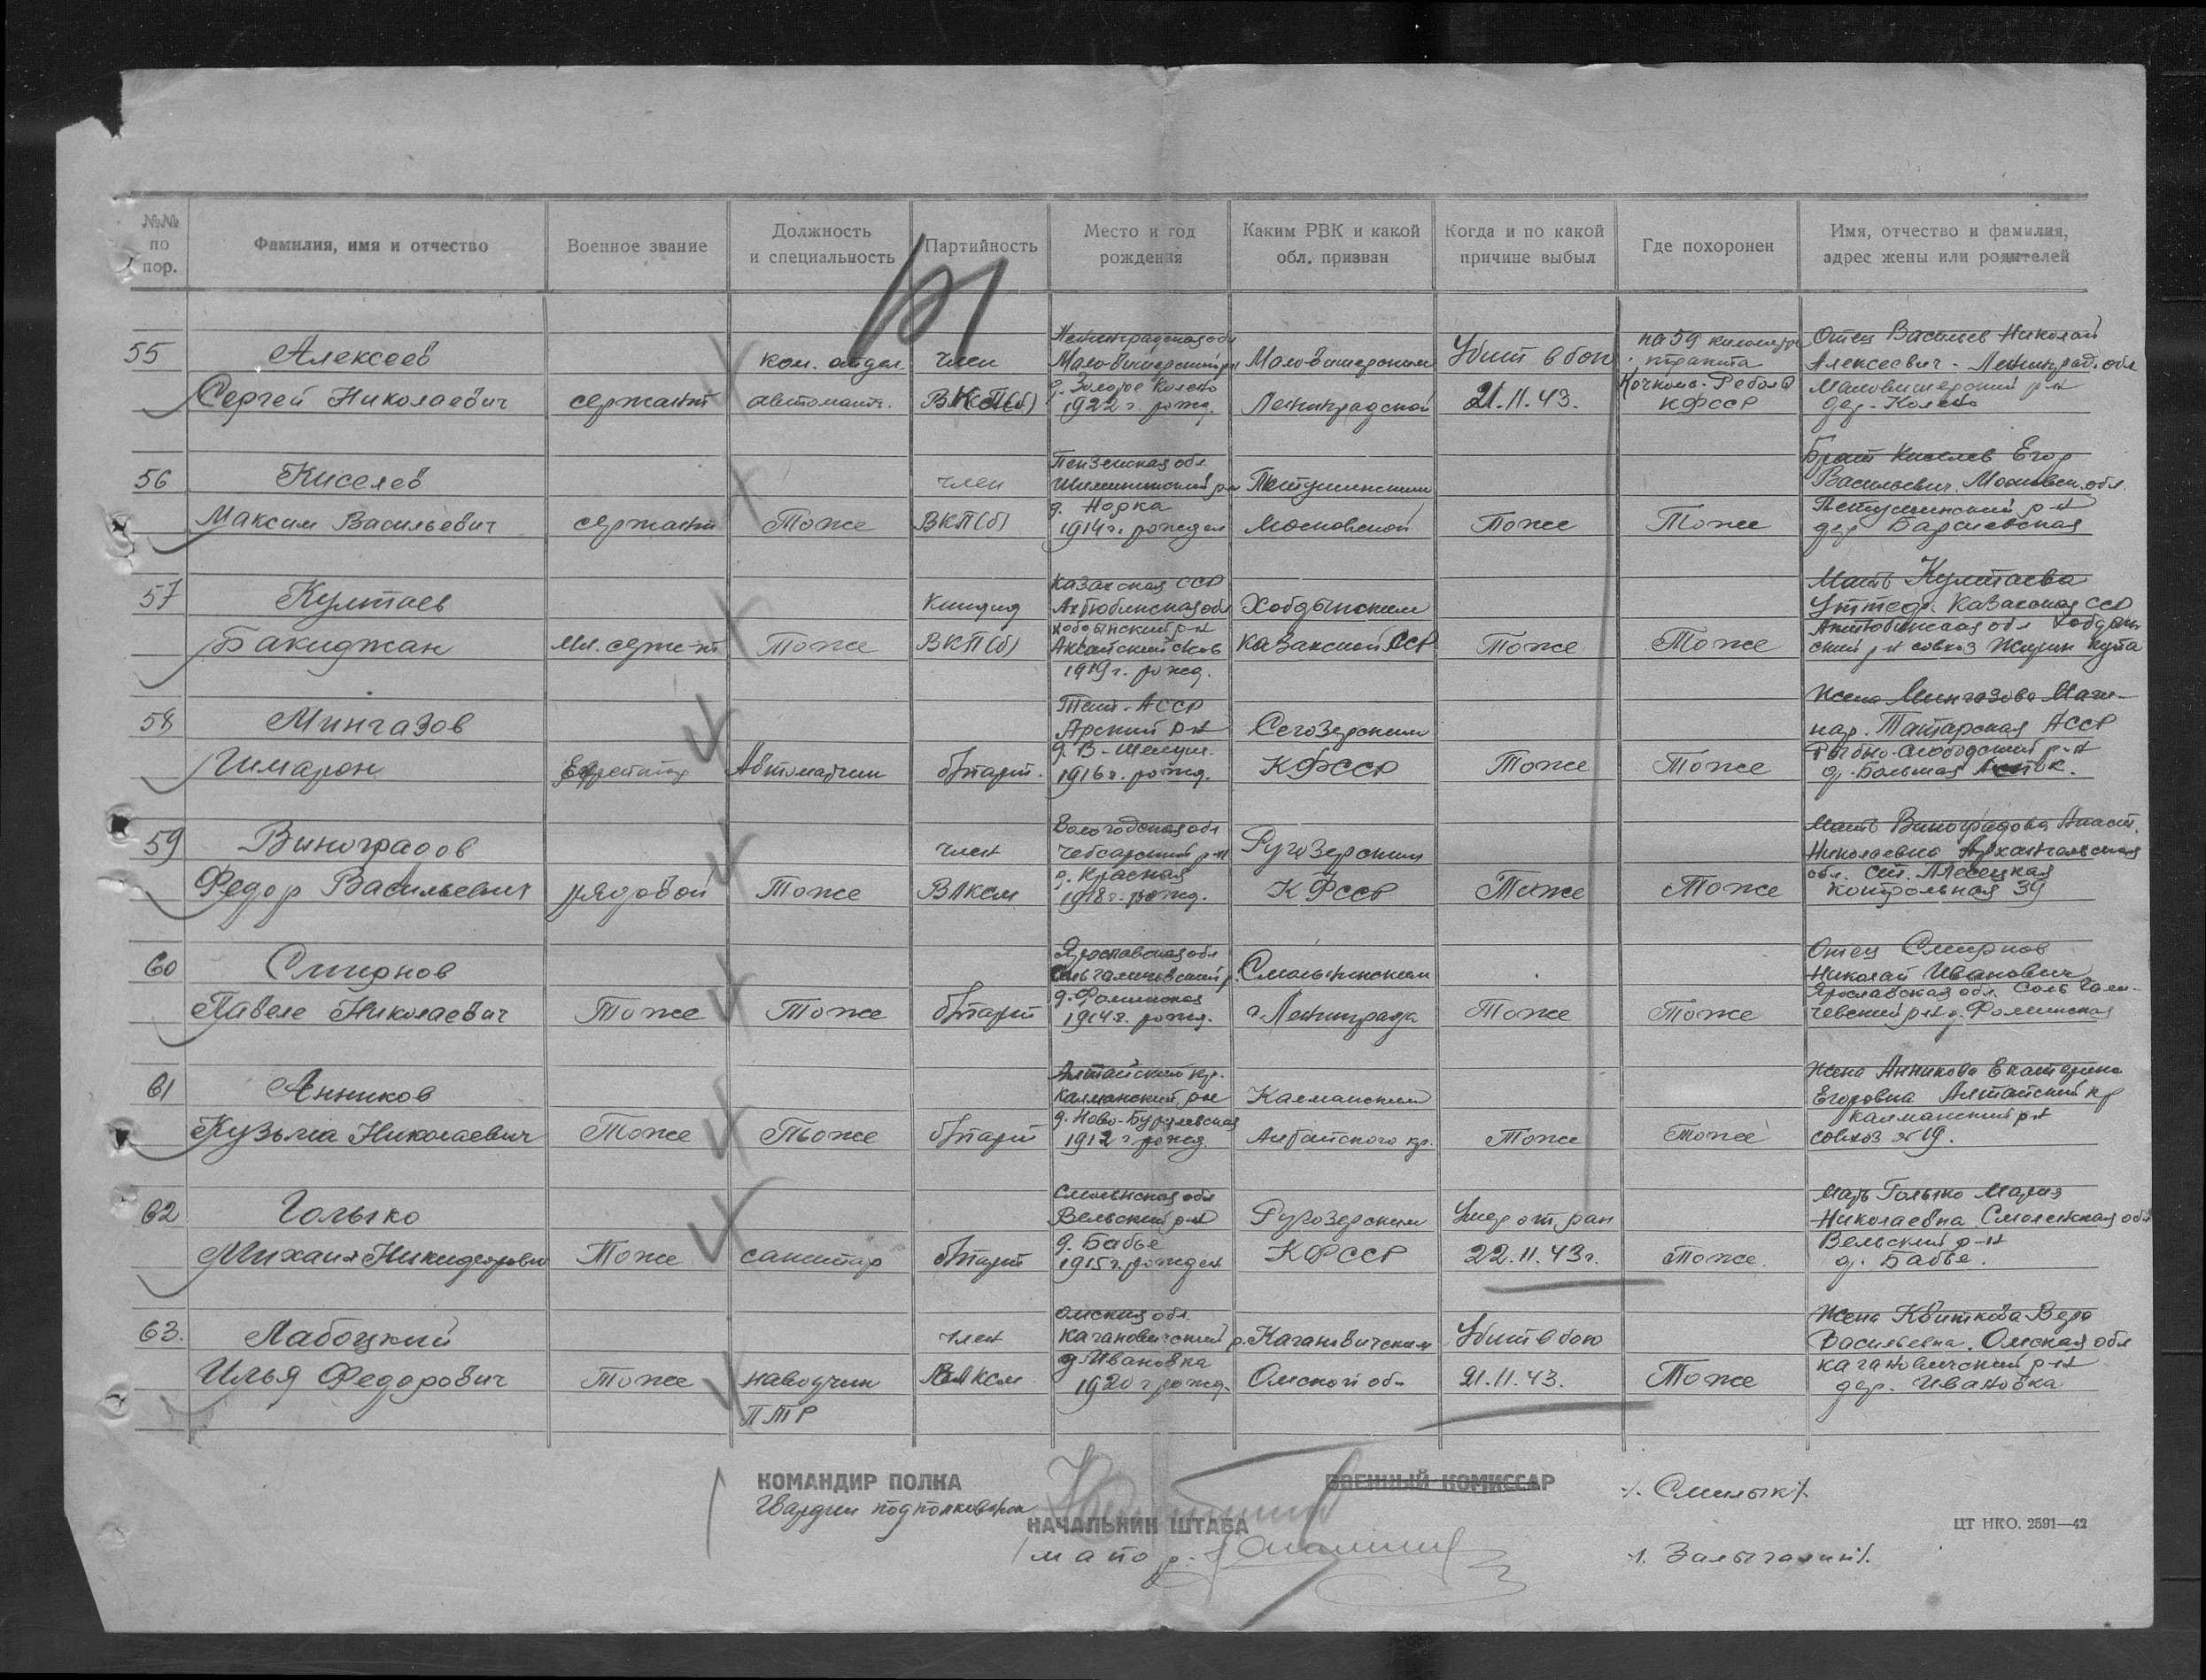 №№ по пор.
Фамилия, имя и отчество
Военное звание
Должность и специальность
Партийность
Место и год рождения
Каким РВК и какой обл. призван
Когда и по какой причине выбыл
Где похоронен
Имя, отчество и фамилия, адрес жены или родителей
55
Алексеев
Сергей Николаевич
сержант
ком. отдел.
автоматч.
член
ВКП(б)
Ленинградская обл
Мало-Вишерский р-н
д. Золотое Колено
1922 г. рожд.
Мало-Вишерским
Ленинградской
Убит в бою
21.11.43.
на 59 километре
тракта
Кочкома-Реболы
КФССР
Отец Васильев Николай
Алексеевич - Ленинград. обл
Маловишерский р-н
дер. Колено
56
Киселев
Максим Васильевич
сержант
Тоже
член
ВКП(б)
Пензенская обл.
д. Норка
1914 г. рожден
Петушинским
Московской
Тоже
Тоже
Брат Киселев Егор
Васильевич. Московск. обл.
Петушинский р-н
дер
57
Култаев
Бакиджан
Мл. серж-нт
Тоже
Кандид
ВКП(б)
Казахская ССР
Актюбинская обл
Хобдынский р-н
1919 г. рожд.
Хобдынским
Казахской ССР
Тоже
Тоже
Мать Култаева
Казахская ССР
Актюбинская обл Хобдын-
ский р-н совхоз
58
Мингазов
Гимарон
Ефрейтор
Автоматчик
б/парт.
Тат. АССР
Арский р-н
1916 г. рожд.
Сегозерским
КФССР
Тоже
Тоже
Жена Мингазова Маги-
нар. Татарская АССР
Рыбно-Слободский р-н
д. Большая
59
Виноградов
Федор Васильевич
рядовой
Тоже
член
ВЛКСМ
Вологодская обл
Чебсарский р-н
д. Красная
1918 г. рожд.
Ругозерским
КФССР
Тоже
Тоже
Мать Виноградова Анаст.
Николаевна Архангельская
обл. ст. Плесецкая
Контрольная 39
60
Смирнов
Павел Николаевич
Тоже
Тоже
б/парт
Ярославская обл
Сольгаличевский р.
д. Фоминская
1914 г. рожд.
Смольнинским
г. Ленинграда
Тоже
Тоже
Отец Смирнов
Николай Иванович
Ярославская обл. Соль Гали-
чевский р-н д. Фоминская
61
Анников
Кузьма Николаевич
Тоже
Тоже
б/парт
Алтайский кр.
Калманский р-н
1912 г рожд.
Калманским
Алтайского кр.
Тоже
Тоже
Жена Анникова Екатерина
Егоровна Алтайский кр
Калманский р-н
совхоз № 19.
62
Голыко
Тоже
санитар
б/парт
Смоленская обл
Бельский р-н
д. Бабье
1915 г. рожден
Ругозерским
КФССР
Умер от ран
22.11.43г.
Тоже.
Мать Голыко Мария
Николаевна Смоленская обл
Бельский р-н
д. Бабье.
63.
Лабоцкий
Илья Федорович
Тоже
наводчик
ПТР
член
ВЛКСМ
Омская обл.
Кагановичский р.
д. Ивановка
1920 г рожд.
Кагановичским
Омской обл
Убит в бою
21.11.43.
Тоже
Жена Квиткова Вера
Васильевна. Омская обл
Кагановичский р-н
дер. Ивановка
КОМАНДИР ПОЛКА
Гвардии подполковник
ВОЕННЫЙ КОМИССАР
НАЧАЛЬНИК ШТАБА
майор
ЦТ НКО. 2591—42